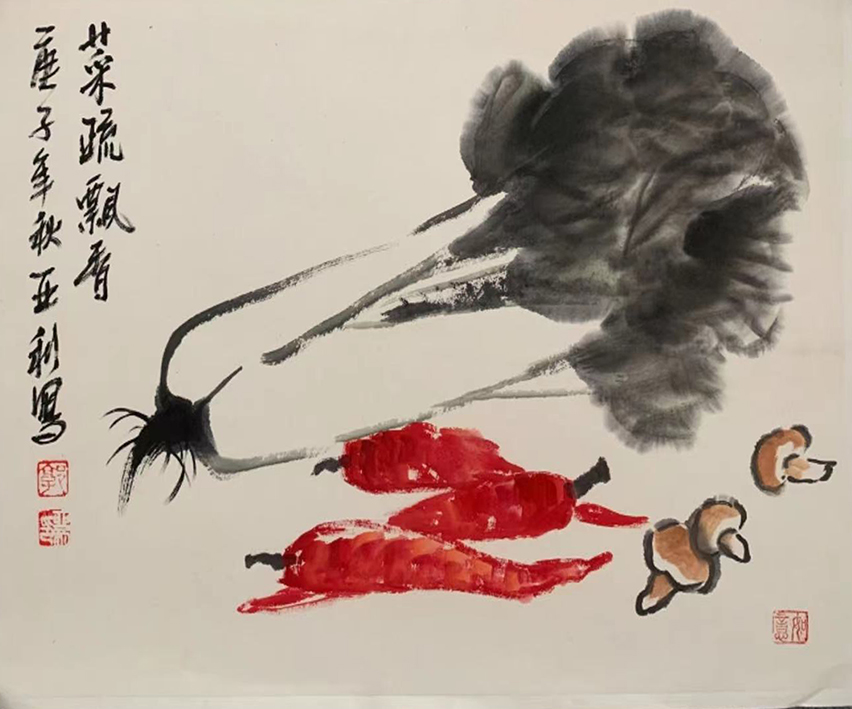 菜蔬飘香
庚子年秋亚利写
如意